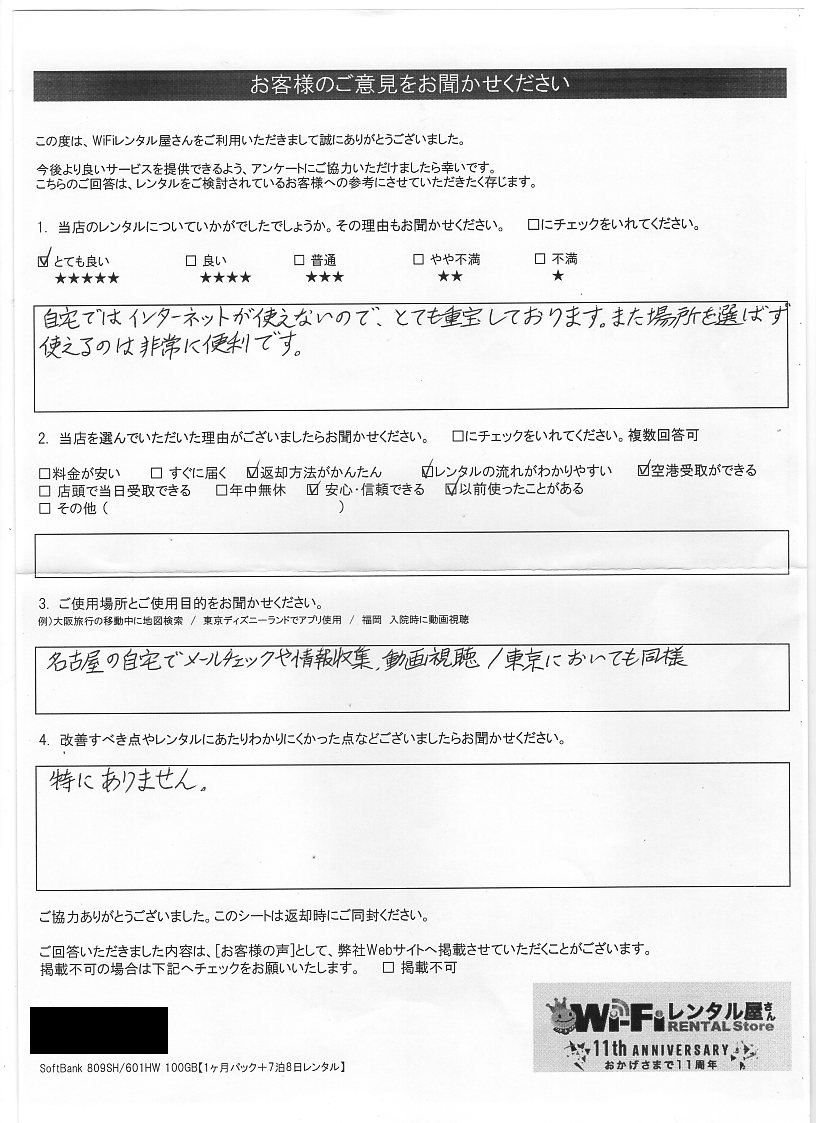 お客様のご意見をお聞かせください
この度は、WiFiレンタル屋さんをご利用いただきまして誠にありがとうございました。
今後より良いサービスを提供できるよう、アンケートにご協力いただけましたら幸いです。
こちらのご回答は、レンタルをご検討されているお客様への参考にさせていただきたく存じます。
1. 当店のレンタルについていかがでしたでしょうか。その理由もお聞かせください。 □にチェックをいれてください。
☑ とても良い □ 良い □ 普通 □ やや不満 □ 不満
★★★★★ ★★★★ ★★★ ★★ ★
自宅ではインターネットが使えないので、とても重宝しております。また場所を選ばず
使えるのは非常に便利です。
2. 当店を選んでいただいた理由がございましたらお聞かせください。 □にチェックをいれてください。複数回答可
□料金が安い □ すぐに届く ☑返却方法がかんたん ☑レンタルの流れがわかりやすい ☑空港受取ができる
□ 店頭で当日受取できる □年中無休 ☑ 安心・信頼できる ☑以前使ったことがある
□ その他 ( )
3. ご使用場所とご使用目的をお聞かせください。
例)大阪旅行の移動中に地図検索 / 東京ディズニーランドでアプリ使用 / 福岡 入院時に動画視聴
名古屋の自宅でメールチェックや情報収集、動画視聴 / 東京においても同様
4. 改善すべき点やレンタルにあたりわかりにくかった点などございましたらお聞かせください。
特にありません。
ご協力ありがとうございました。このシートは返却時にご同封ください。
ご回答いただきました内容は、[お客様の声]として、弊社Webサイトへ掲載させていただくことがございます。
掲載不可の場合は下記へチェックをお願いいたします。 □ 掲載不可
Wi-Fiレンタル屋さん
RENTAL Store
11th ANNIVERSARY
おかげさまで11周年
SoftBank 809SH/601HW 100GB【1ヶ月パック+7泊8日レンタル】